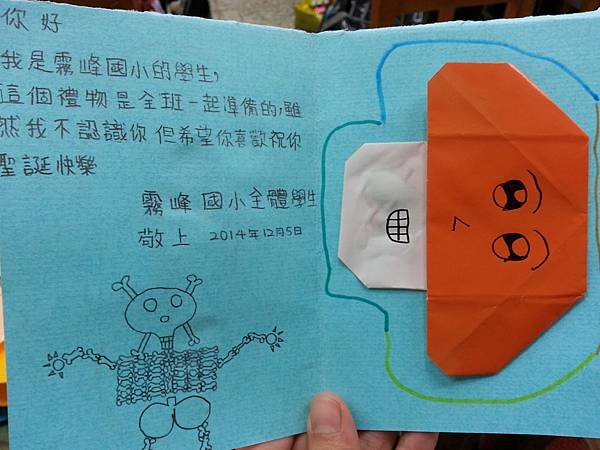 你好
我是霧峰國小的學生,
這個禮物是全班一起準備的,雖
然我不認識你但希望你喜歡祝你
聖誕快樂
霧峰國小全體學生
敬上 2014年12月5日